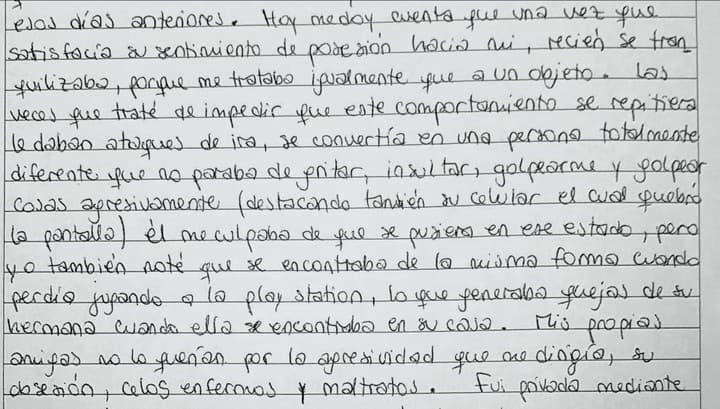 esos días anteriores. Hoy me doy cuenta que una vez que
satisfacía su sentimiento de posesión hacia mi, recién se tran
quilizaba, porque me trataba igualmente que a un objeto. Las
veces que traté de impedir que este comportamiento se repitiera
le daban ataques de ira, se convertía en una persona totalmente
diferente que no paraba de gritar, insultar, golpearme y golpear
cosas agresivamente (destacando también su celular el cual quebró
la pantalla) él me culpaba de que se pusiera en ese estado, pero
yo también noté que se encontraba de la misma forma cuando
perdía jugando a la play station, lo que generaba quejas de su
hermana cuando ella se encontraba en su casa. Mis propias
amigas no lo querían por la agresividad que me dirigía, su
obsesión, celos enfermos y maltratos. Fui privada mediante